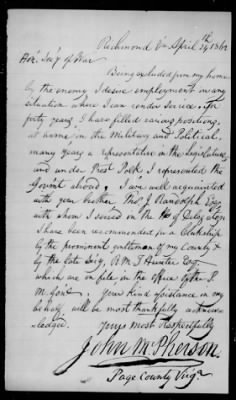 Richmond Va April 24th 1862
Hon. Secy of War
Being excluded from my home
by the enemy I desire employment in any
situation where I can render service. For
forty years I have filled various positions,
at home in the Military and Political,
many years a representative in the Legislature
and under Prest Polk I represented the
Govmt abroad. I am well acquainted
with your brother Thos J. Randolph Esqr
with whom I served in the Ho. of Delegates
I have been recommended for a Clerkship
by the prominent gentlemen of my County &
by the late Secy, R. M. T. Hunter Esq.
which are on file in the office of the P.
M. Genl. Your kind assistance in my
behalf will be most thankfully acknow
ledged.
Yours most respectfully
John McPherson.
Page County Virga